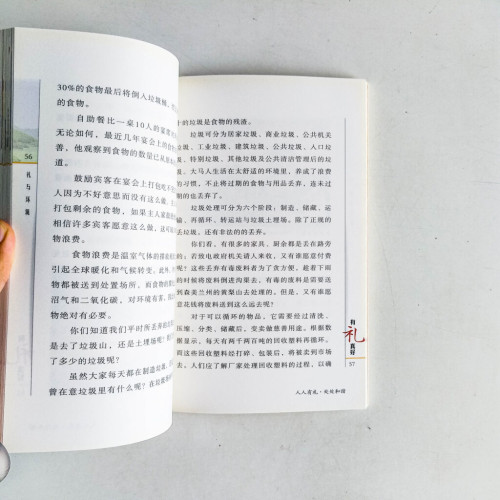 30%的食物最后将倒入垃圾
的食物。
自助餐比一桌10人的宴
无论如何，最近几年宴会上的食
善，他观察到食物的数量已从
道。
鼓励宾客在宴会上打包吃不
人因为不好意思而没有这么做，
打包剩余的食物，如果主人家
相信许多宾客愿意这么做，这可
物浪费。
食物浪费是温室气体的排
引起全球暖化和气候转变。此外，
物都被送到处置场所，而食物的
沼气和二氧化碳，对环境有害，
物绝对有必要。
你们知道我们平时所丢弃的
是去了垃圾山，还是土埋场呢？
了多少的垃圾呢？
虽然大家每天都在制造垃圾，
曾在意垃圾里有什么呢？在
56
礼与环境
的垃圾是食物的残渣。
垃圾可分为居家垃圾、商业垃圾、公共机关
、工业垃圾、建筑垃圾、公共垃圾、人口垃
、特别垃圾、其他垃圾及公共清洁管理后的垃
。大马人生活在太舒适的环境里，养成了浪费
的习惯，不止将过期的食物与用品丢弃，连未过
的也丢弃了。
垃圾处理可分为六个阶段，制造、储藏、运
、再循环、转运站与垃圾土埋场。除了正规的
丢垃圾，还有非法的的丢弃。
你们看，有很多的家具、厨余都是丢在路旁
的。若致电政府机关请人来收，又有谁愿意付费
呢？这些丢弃有毒废料者为了贪方便，趁着下雨
的时候将废料倒进沟渠去。有毒的废料是需要送
到森美兰州的黄梨山去处理的。但是，又有谁愿
花钱将废料送到这么远去呢？
对于可以循环的物品，它需要经过清洗、
压缩、分类、储藏后，变卖做慈善用途。根据数
据显示，每天有两千两百吨的回收塑料再循环。
而这些回收塑料经打碎、包装后，将被卖到市场
去。人们应了解厂家处理回收塑料的过程，以确
有礼真好
57
人人有礼·处处和谐